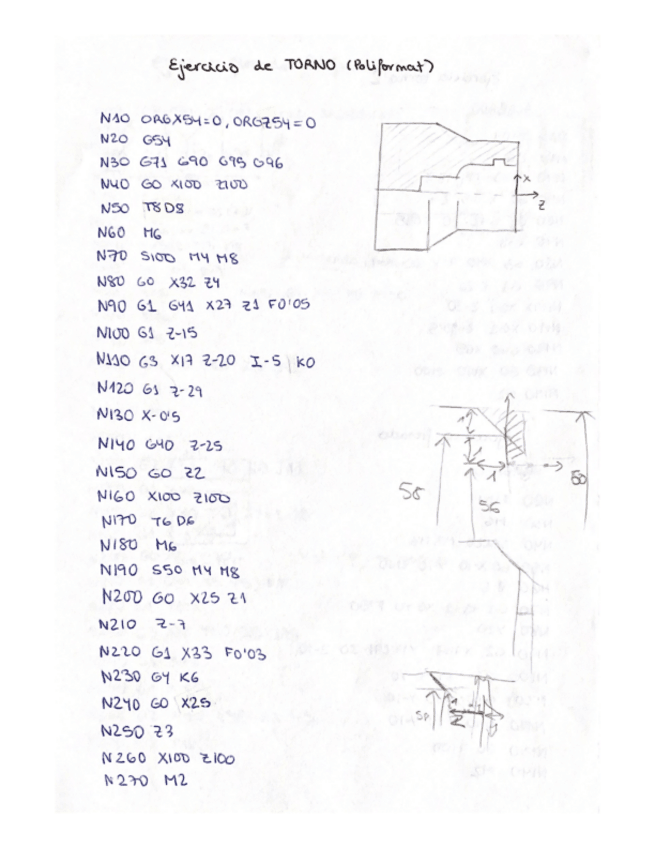 Ejercicio de TORNO (Poliformat)
N10 ORGX54=0, ORGZ54=0
N20 G54
N30 G71 G90 G95 G96
N40 G0 X100 Z100
N50 T8D8
N60 M6
N70 S100 M4 M8
N80 G0 X32 Z4
N90 G1 G41 X27 Z1 F0'05
N100 G1 Z-15
N110 G3 X17 Z-20 I-5 K0
N120 G1 Z-29
N130 X-0'5
N140 G40 Z-25
N150 G0 Z2
N160 X100 Z100
N170 T6 D6
N180 M6
N190 S50 M4 M8
N200 G0 X25 Z1
N210 Z-7
N220 G1 X33 F0'03
N230 G4 K6
N240 G0 X25
N250 Z3
N260 X100 Z100
N270 M2
X
Z
1
58
56
60